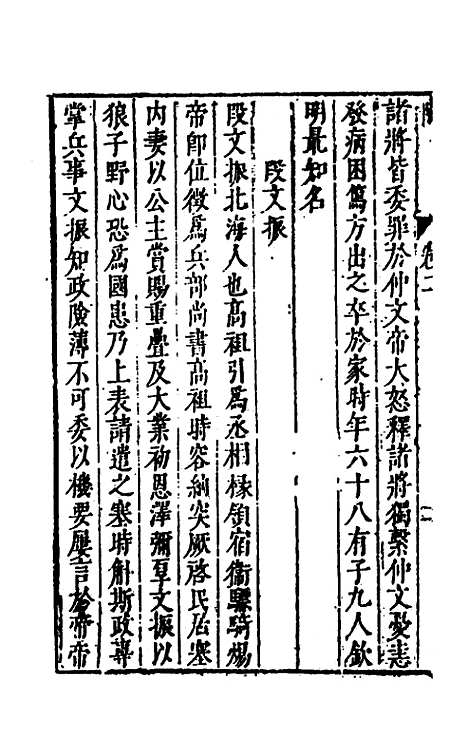 諸將皆委罪於仲文帝大怒釋諸將獨繫仲文憂恚
發病困篤方出之卒於家時年六十八有子九人欽
明最知名
段文振
段文振北海人也高祖引爲丞相掾領宿衞驃騎煬
帝卽位徵爲兵部尚書高祖時容納突厥啓民居塞
内妻以公主賞賜重疊及大業初恩澤彌厚文振以
狼子野心恐爲國患乃上表請遣之塞時斛斯政專
掌兵事文振知政險薄不可委以機要屢言於帝帝